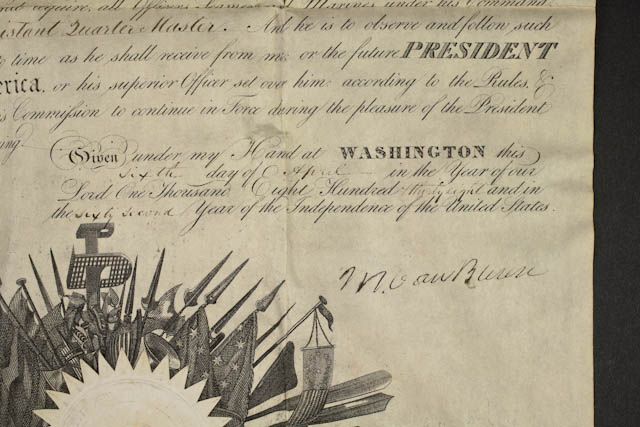 require, all Officers Marines under his Command
istant Quarter Master. And he is to observe and follow such
time as he shall receive from me or the future PRESIDENT
erica, or his superior Officer set over him according to the Rules, &
is Commission to continue in Force during the pleasure of the President
ing.
Given under my Hand at WASHINGTON this
Sixth day of April in the Year of our
Lord One Thousand Eight Hundred thirty eight and in
the sixty second Year of the Independence of the United States.
M. Van Buren